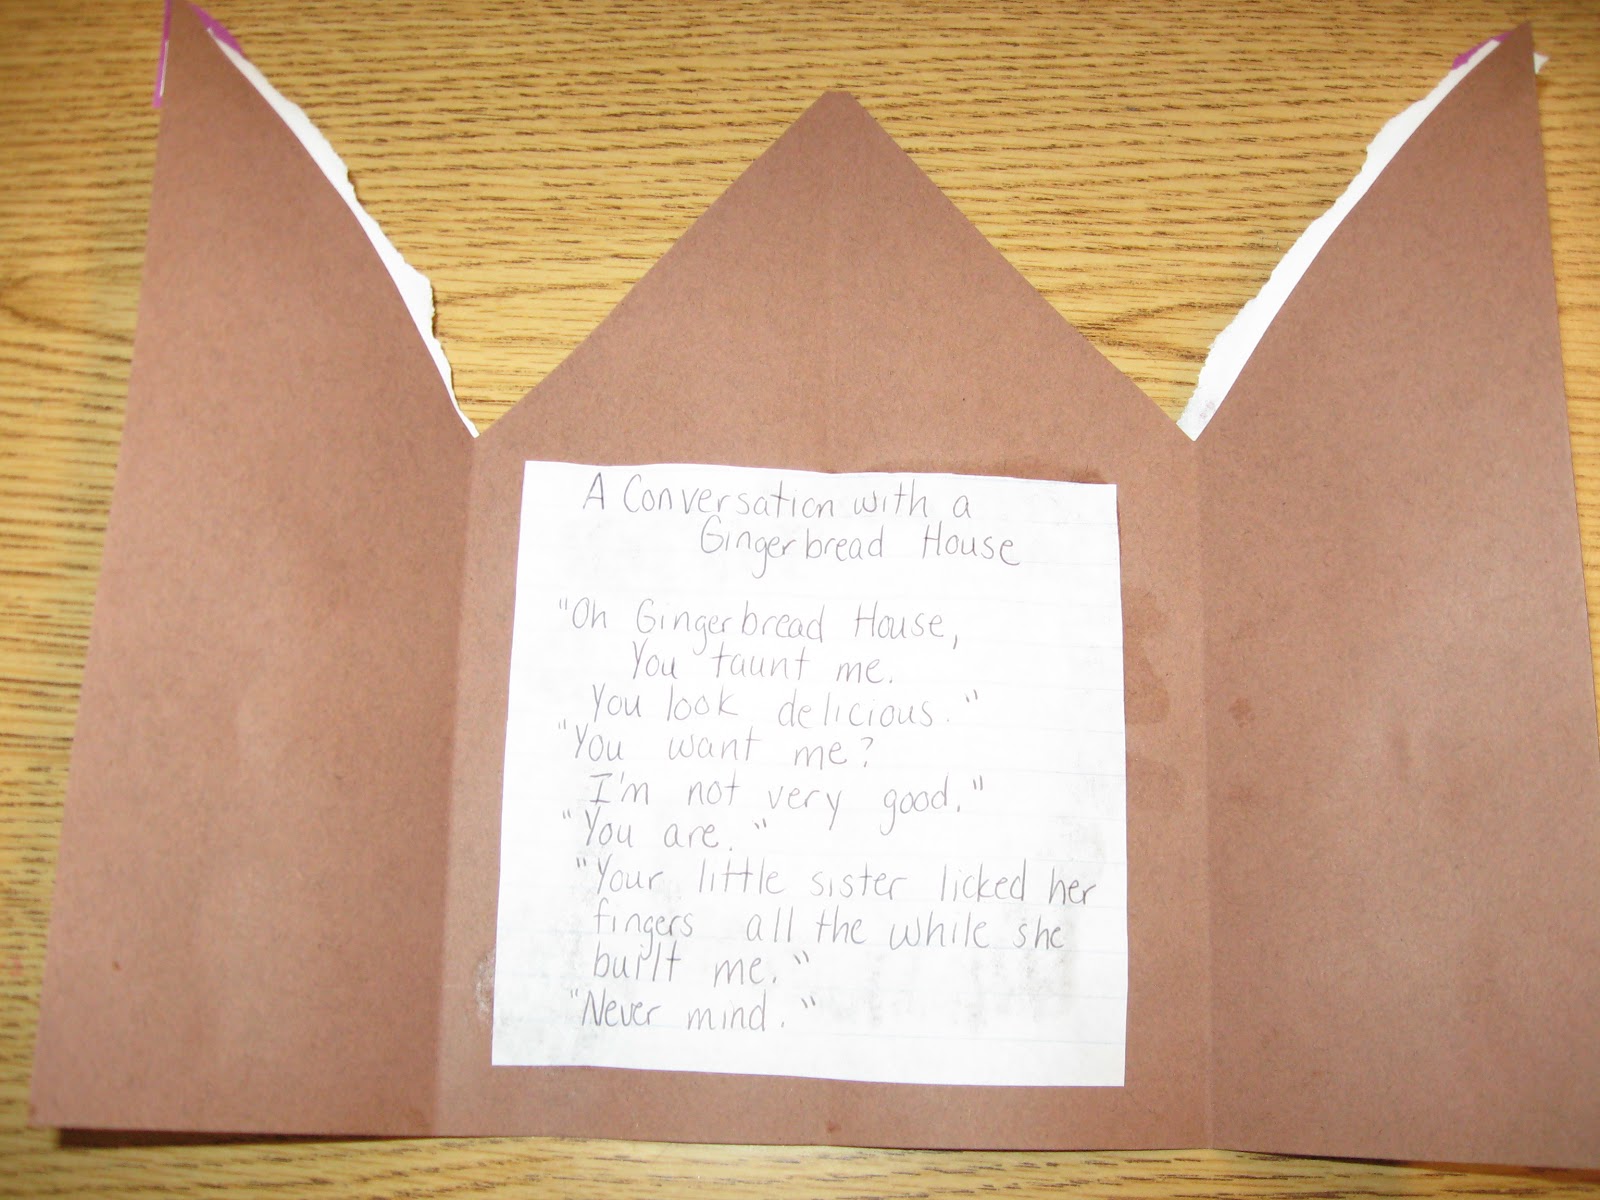 A Conversation with a
Gingerbread House
"Oh Gingerbread House,
You taunt me.
You look delicious."
"You want me?
I'm not very good."
"You are."
"Your little sister licked her
fingers all the while she
built me."
"Never mind."